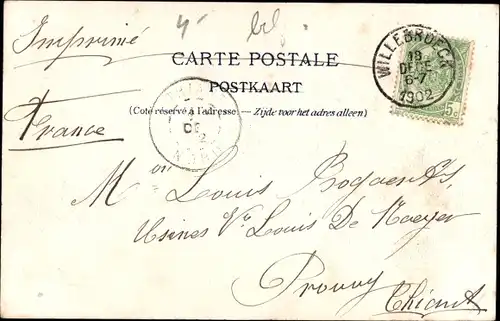 Imprimé
CARTE POSTALE
POSTKAART
(Côté réservé à l'adresse. — Zijde voor het adres alleen)
WILLEBROECK
18
DEC
6-7
1902
5c
France
DE
Mon Louis Bogaerts
Usines Ve Louis De Naeyer
Prouvy
Thiant